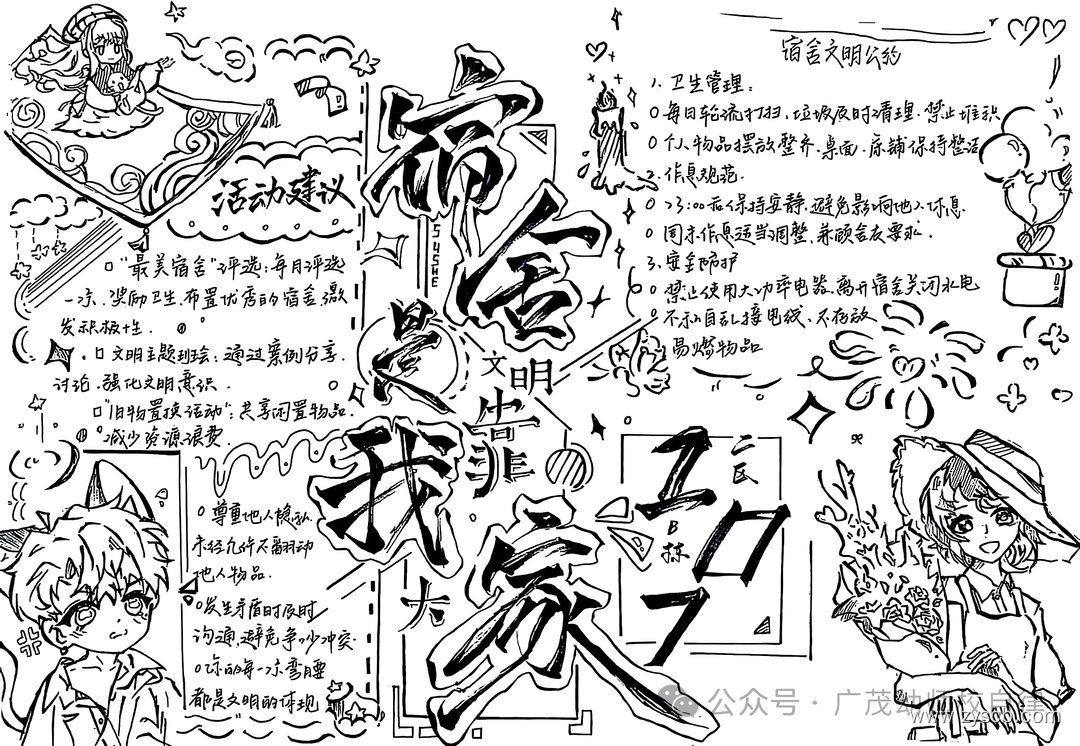 活动建议
"最美宿舍"评选:每月评选
一次,奖励卫生、布置优秀的宿舍,激
发积极性.
文明主题班会:通过案例分享.
讨论.强化文明意识.
"旧物置换活动":共享闲置物品.
减少资源浪费.
尊重他人隐私.
未经允许不翻动
他人物品.
发生矛盾时及时
沟通,避免争吵冲突.
你的每一次弯腰
都是文明的体现
宿舍是我家
SUSHE
文明靠大
二民
B栋
宿舍文明公约
1.卫生管理:
每日轮流打扫.垃圾及时清理.禁止堆积
个人物品摆放整齐.桌面.床铺保持整洁
2.作息规范.
23:00后保持安静.避免影响他人休息.
周末作息适当调整,兼顾舍友要求.
3.安全防护
禁止使用大功率电器.离开宿舍关闭水电
不私自乱接电线、不存放
易燃物品
公众号·广茂幼师校自建
www.zyscb.com